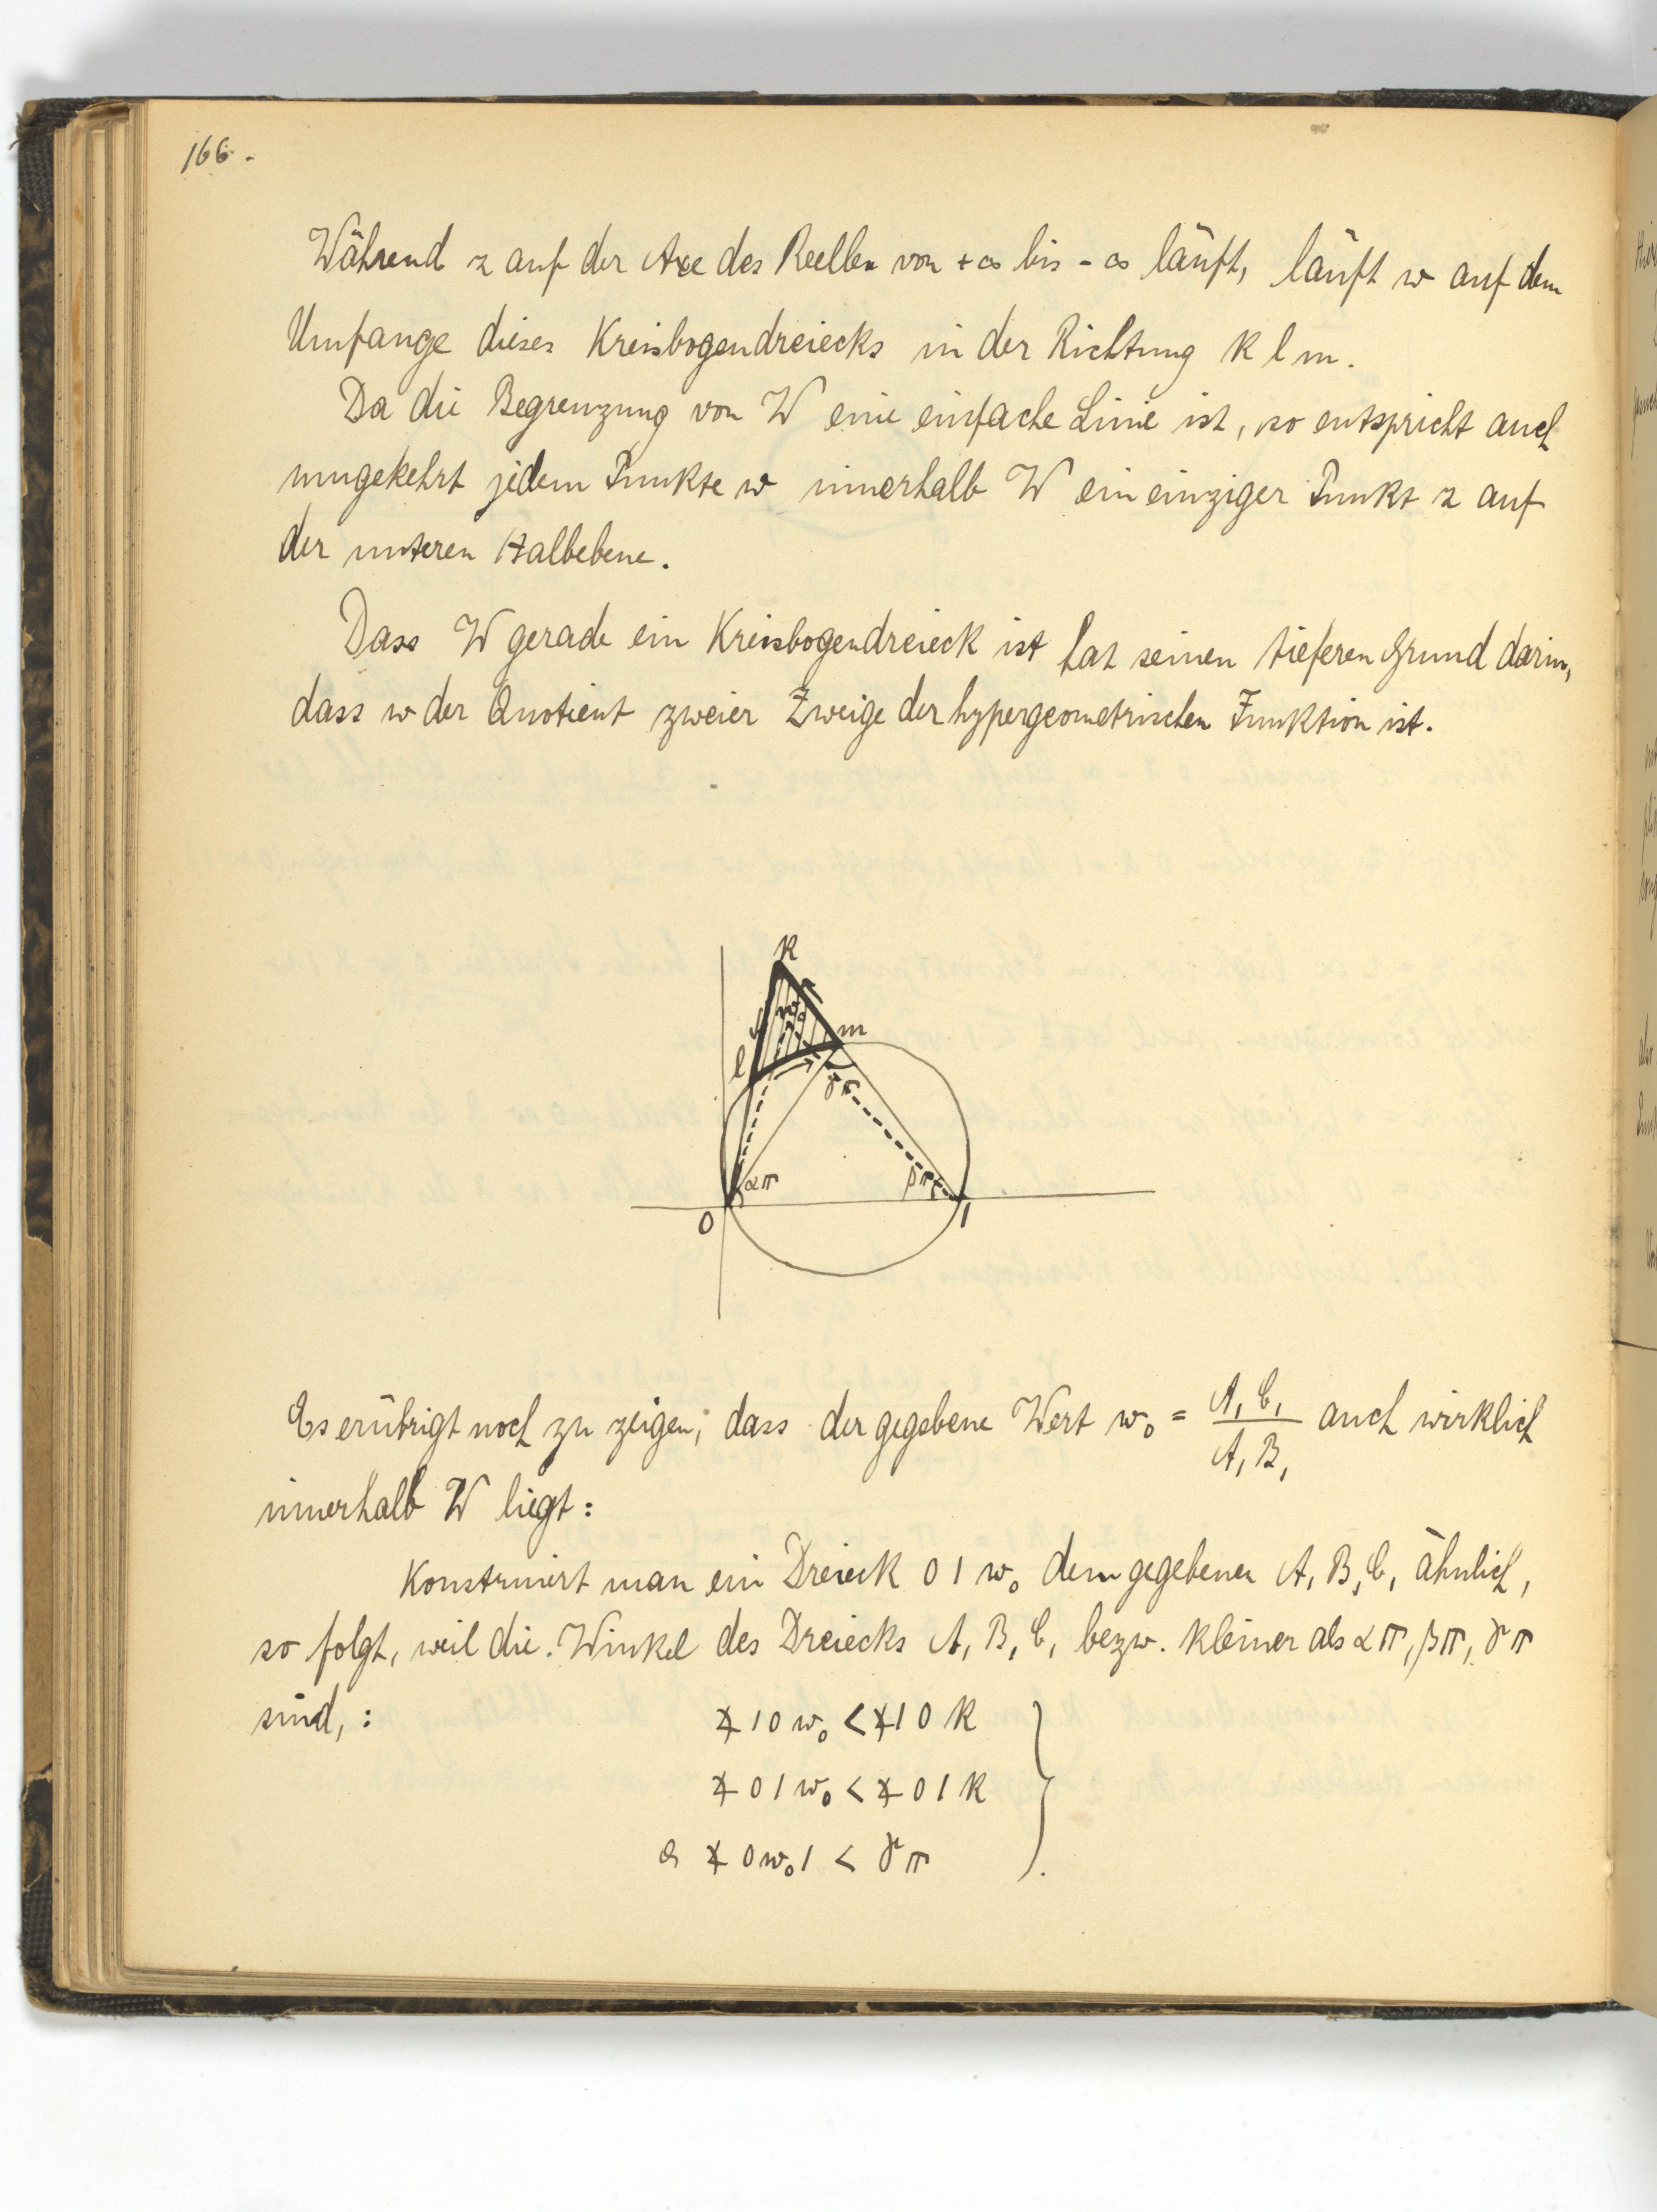 166.
Während z auf der Axe des Reellen von +∞ bis -∞ läuft, läuft w auf dem
Umfange dieses Kreisbogendreiecks in der Richtung k l m.
Da die Begrenzung von W eine einfache Linie ist, so entspricht auch
umgekehrt jedem Punkte w innerhalb W ein einziger Punkt z auf
der unteren Halbebene.
Dass W gerade ein Kreisbogendreieck ist hat seinen tieferen Grund darin,
dass w der Quotient zweier Zweige der hypergeometrischen Funktion ist.
k
w₀
m
l
γπ
απ
βπ
0
1
Es erübrigt noch zu zeigen, dass der gegebene Wert w₀ = A₁C₁/A₁B₁ auch wirklich
innerhalb W liegt:
Konstruiert man ein Dreieck 0 1 w₀ dem gegebenen A₁B₁C₁ ähnlich,
so folgt, weil die Winkel des Dreiecks A₁B₁C₁ bezw. kleiner als απ, βπ, γπ
sind,:
∡ 1 0 w₀ < ∡ 1 0 k
∡ 0 1 w₀ < ∡ 0 1 k
& ∡ 0 w₀ 1 < γπ